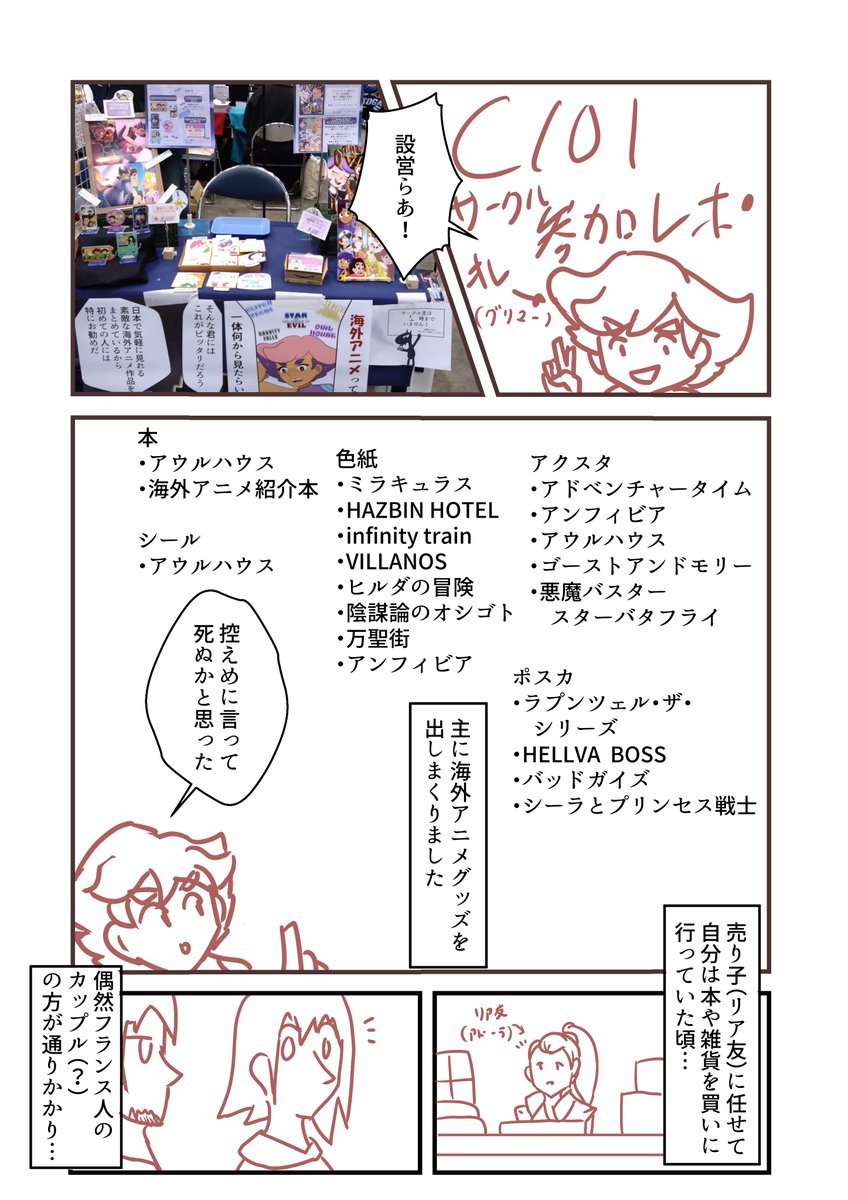 C101
サークル参加レポ
オレ
(グリュー)
設営らあ!
海外アニメって
一体何から見たらい
そんな君には
これがピッタリだろう
日本で気軽に見れる
素敵な海外アニメ作品を
まとめているから
初めての人には
特にお勧めだ
GRAVITY
FALLS
STAR
EVIL
OWL
HOUSE
本
・アウルハウス
・海外アニメ紹介本
シール
・アウルハウス
色紙
・ミラキュラス
・HAZBIN HOTEL
・infinity train
・VILLANOS
・ヒルダの冒険
・陰謀論のオシゴト
・万聖街
・アンフィビア
アクスタ
・アドベンチャータイム
・アンフィビア
・アウルハウス
・ゴーストアンドモリー
・悪魔バスター
スターバタフライ
ポスカ
・ラプンツェル・ザ・
シリーズ
・HELLVA BOSS
・バッドガイズ
・シーラとプリンセス戦士
主に海外アニメグッズを
出しまくりました
控えめに言って
死ぬかと思った
売り子(リア友)に任せて
自分は本や雑貨を買いに
行っていた頃…
リア友
(アドーラ)
偶然フランス人の
カップル(?)
の方が通りかかり…